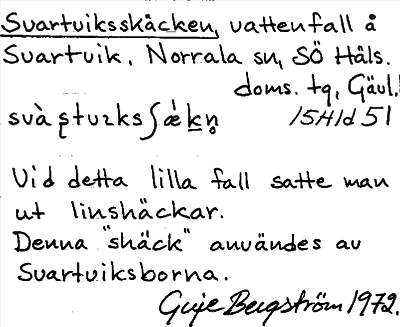 Svartviksskäcken, vattenfall å
Svartvik, Norrala sn, SÖ Häls.
doms. tg, Gävl.
15H1d51
Vid detta lilla fall satte man
ut linshäckar.
Denna "shäck" användes av
Svartviksborna.
Guje Bergström 1972.